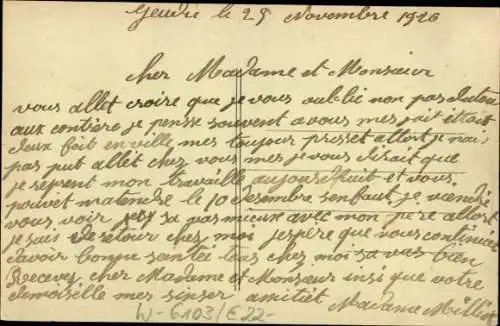 Jeudi le 25 Novembre 1926
cher Madame et Monsieur
vous allet croire que je vous oublie non pas du tou
aux contière je pensse souvent a vous mes jait etait
deux foit en ville mes toujour presset allort je n'ai
pas put allét chez vous mes je vous disait que
je reprent mon travaille aujoursdhuit et vous
pouvet matendre le 10 desembre senfaut je viendré
vous voir sa vas mieux avec mon père allort
je sais de retour chez moi jespère que vous continuée
davoir bonne santée tous chez moi sa vas bien
Recevez cher Madame et Monsieur insi que votre
demoiselle mes sinser amitiét Madame Millie
W-6103/E22-